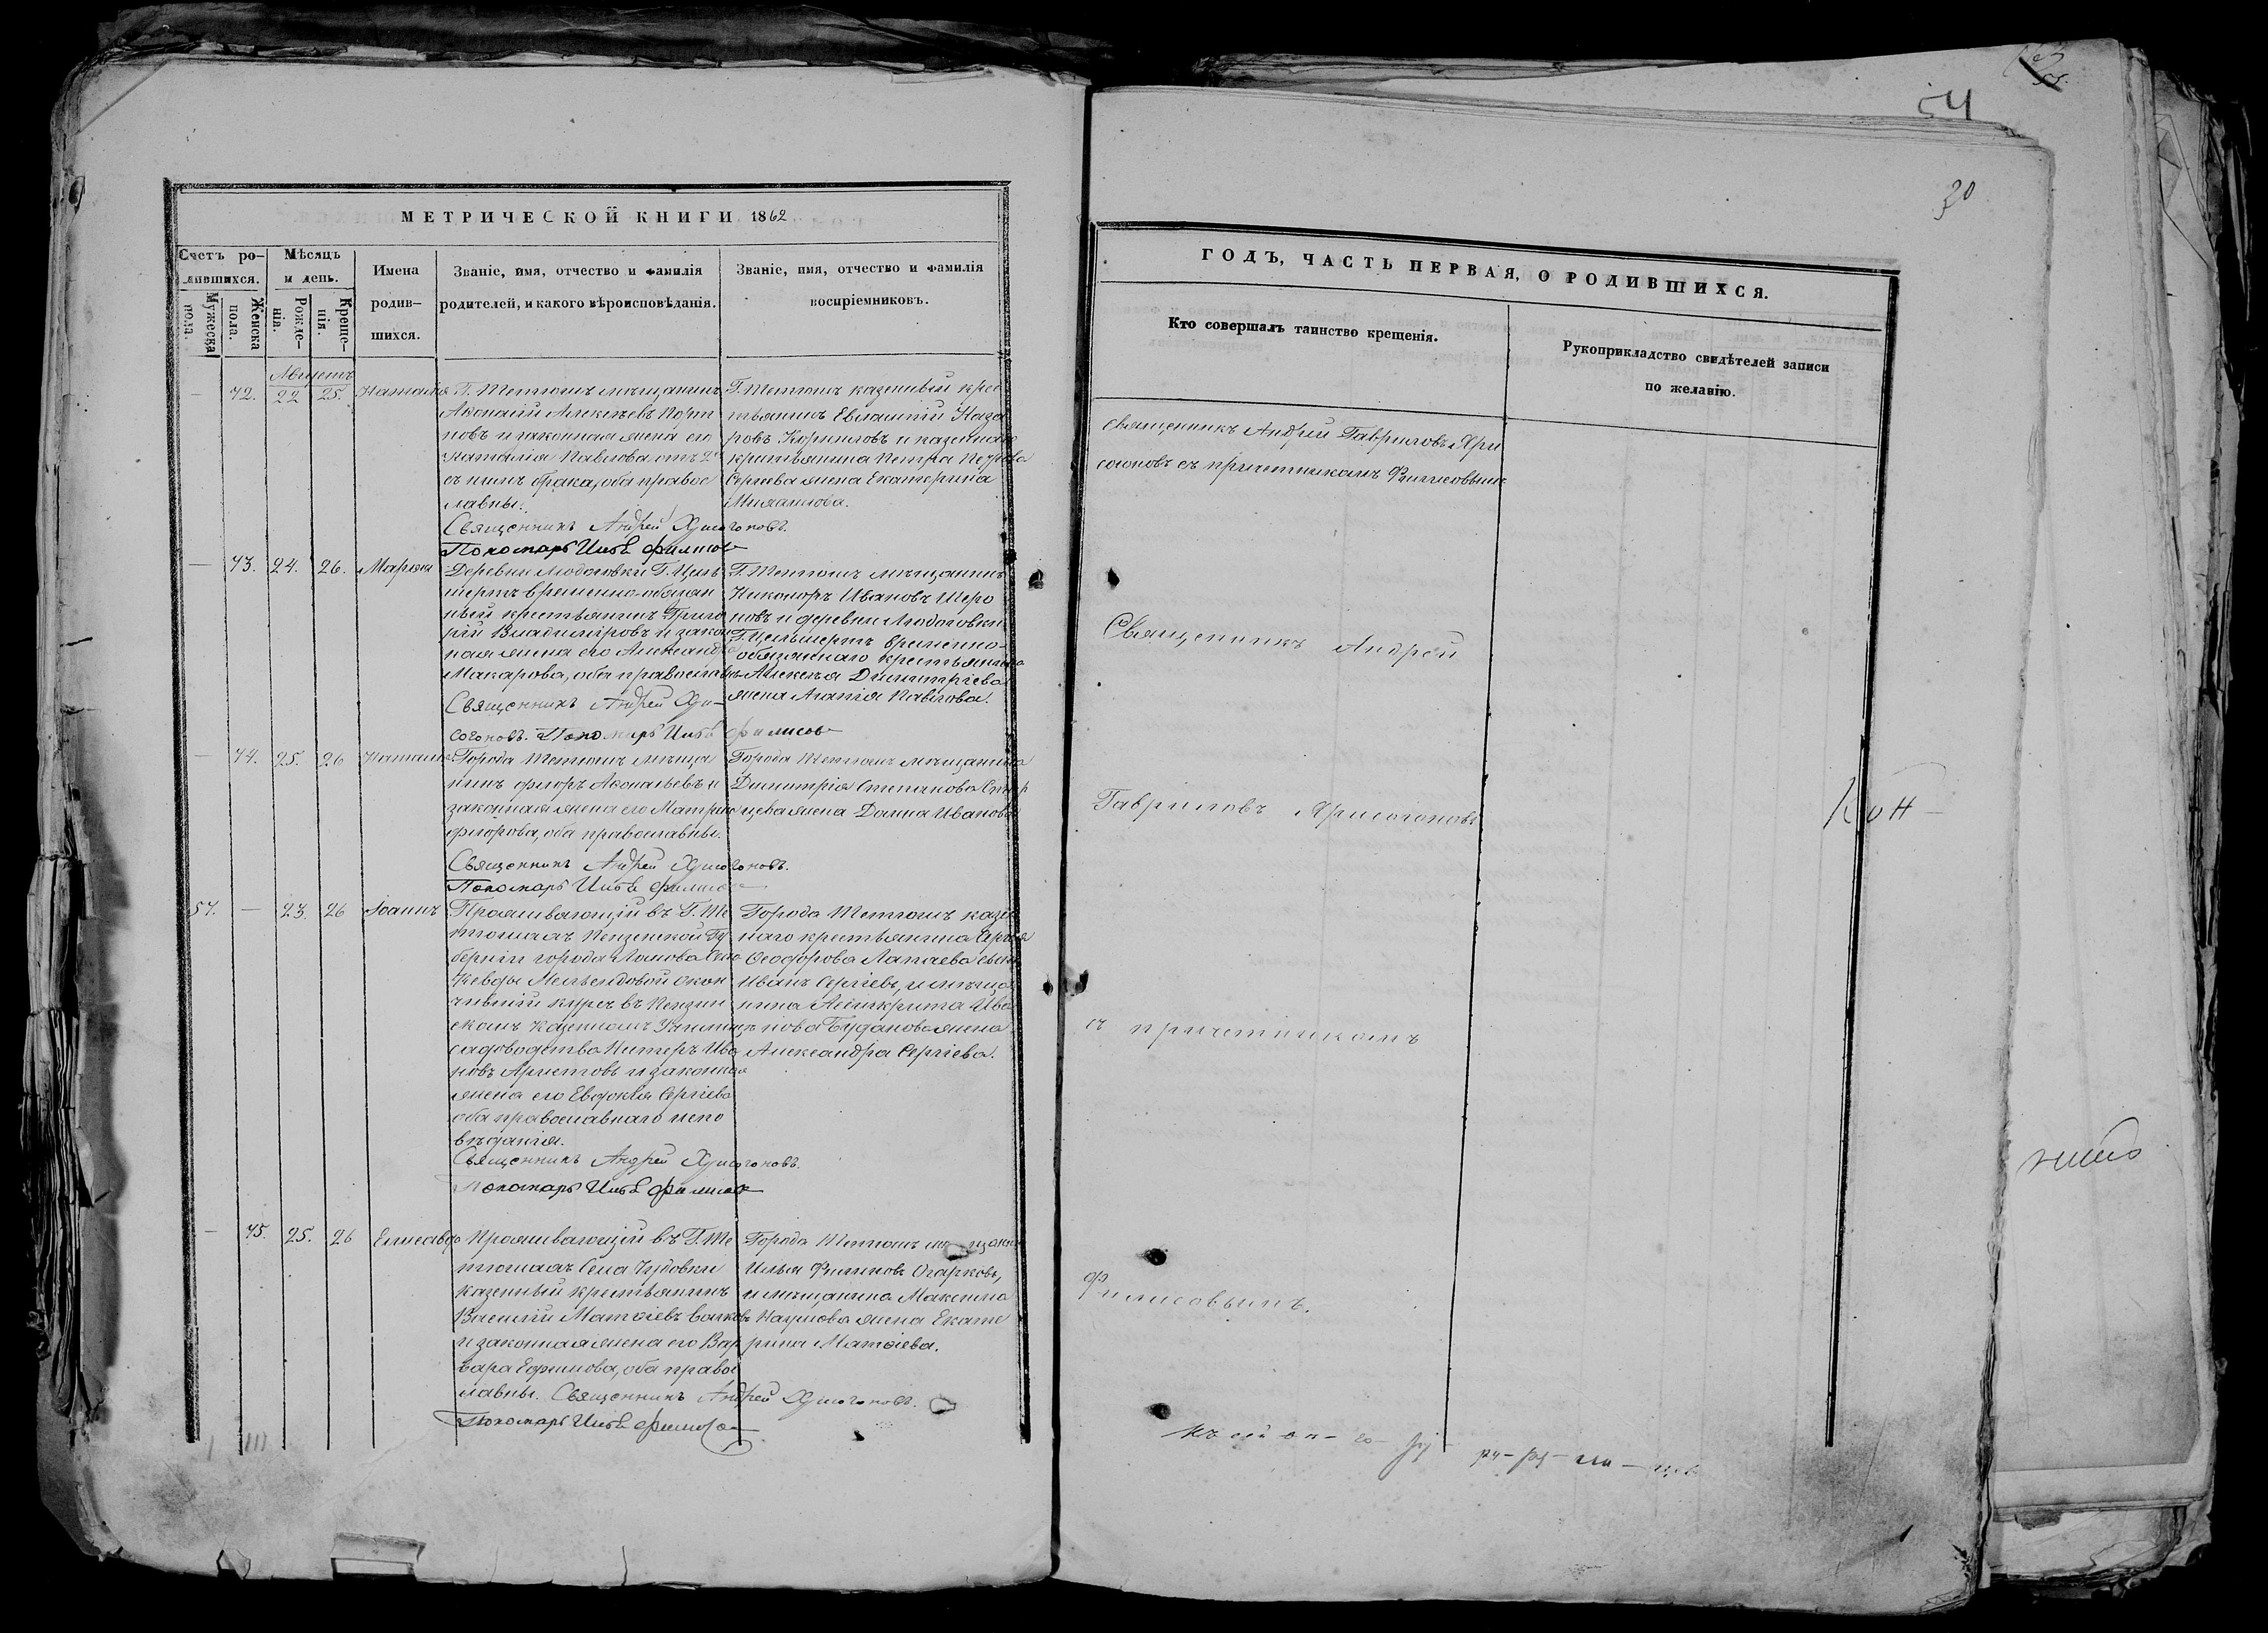 МЕТРИЧЕСКОЙ КНИГИ 1862
Счетъ ро-
дившихся.
Мужеска
пола.
Женска
пола.
Мѣсяцъ
и день.
Рожде-
нія.
Креще-
нія.
Имена
родив-
шихся.
Званіе, имя, отчество и фамилія
родителей, и какого вѣроисповѣданія.
Званіе, имя, отчество и фамилія
воспріемниковъ.
Августъ
— 72. 22 25 Наталія
Г. Тетюшъ мѣщанинъ
новъ и законная жена его
Наталія Павлова отъ 2
съ нимъ брака, оба правос
лавны.
Священникъ Андрей Хрисогоновъ.
Пономарь
Г. Тетюшъ казенный крес
тьянинъ Евлампій Наза
ровъ Корниловъ и казеннаго
крестьянина Петра Педрова
Сергіева жена Екатерина
Михаилова.
— 73. 24. 26. Марія
Деревни Людоговки Г. Циль
шертъ временно-обязан
ный крестьянинъ Григо
рій Владиміровъ и закон
ная жена его Александра
Макарова, оба православны
Священникъ Андрей Хри-
согоновъ. Пономарь
Г. Тетюшъ мѣщанинъ
Никаноръ Ивановъ Шеро
новъ и деревни Людоговки
Г. Цильшертъ временно-
обязаннаго крестьянина
Алексѣя Димитріева
жена Агапія Павлова.
— 74. 25. 26 Наталія
Города Тетюшъ мѣща
нинъ Флоръ Афонасьевъ и
законная жена его Матрона
Флорова, оба православны.
Священникъ Андрей Хрисогоновъ.
Пономарь
Города Тетюшъ мѣщанина
Димитрія Степанова
жена Дарья Иванова
57. — 23. 26 Іоаннъ
Проживающій въ Г. Те
тюшахъ Пензенской Гу
берніи города Ломова Села
Кевды Мельситовой окон
чившій курсъ въ Пензен
скомъ Казенномъ Училищѣ
садоводства Питеръ Ива
новъ Аристовъ и законная
жена его Евдокія Сергіева
оба православнаго испо
вѣданія.
Священникъ Андрей Хрисогоновъ.
Пономарь
Города Тетюшъ казен
наго крестьянина Сергѣя
Феодорова Лапаева сынъ
Иванъ Сергіевъ, и мѣща
нина Асинкрита Ива
нова Буданова жена
Александра Сергіева.
— 75. 25. 26 Елисавета
Проживающій въ Г. Те
тюшахъ Села Чудовки
казенный крестьянинъ
Василій Матѳіевъ Волковъ
и законная жена его Вар
вара Ефимова, оба правос
лавны. Священникъ Андрей Хрисогоновъ.
Пономарь
Города Тетюшъ мѣщанинъ
Илья Филиповъ Огарковъ,
и мѣщанина Максима
Наумова жена Екате
рина Матѳіева.
54
30
ГОДЪ, ЧАСТЬ ПЕРВАЯ, О РОДИВШИХСЯ.
Кто совершалъ таинство крещенія.
Рукоприкладство свидѣтелей записи
по желанію.
Священникъ Андрей Гавриловъ Хри
согоновъ съ причетникомъ Филисовымъ
Священникъ Андрей
Гавриловъ Хрисогоновъ
съ причетникомъ
Филисовымъ.
Кон-